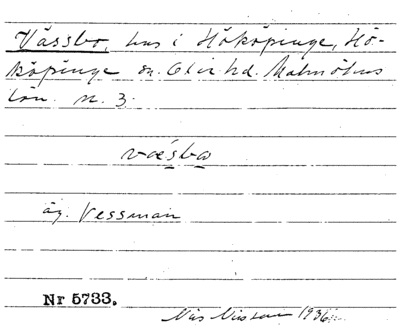 Vässbo, hus i Hököpinge, Hö-
köpinge sn. Oxie hd. Malmöhus
län. n. 3.
væsba
äg. Vessman
Nr 5733.
Nils Nilsson 1936